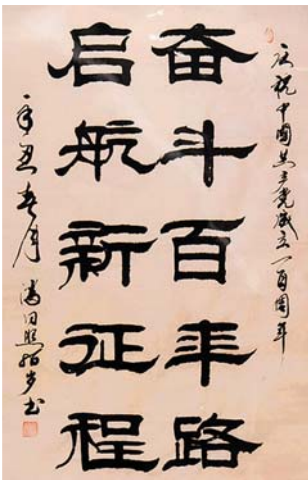 庆祝中国共产党成立一百周年
奋斗百年路
启航新征程
辛丑春月